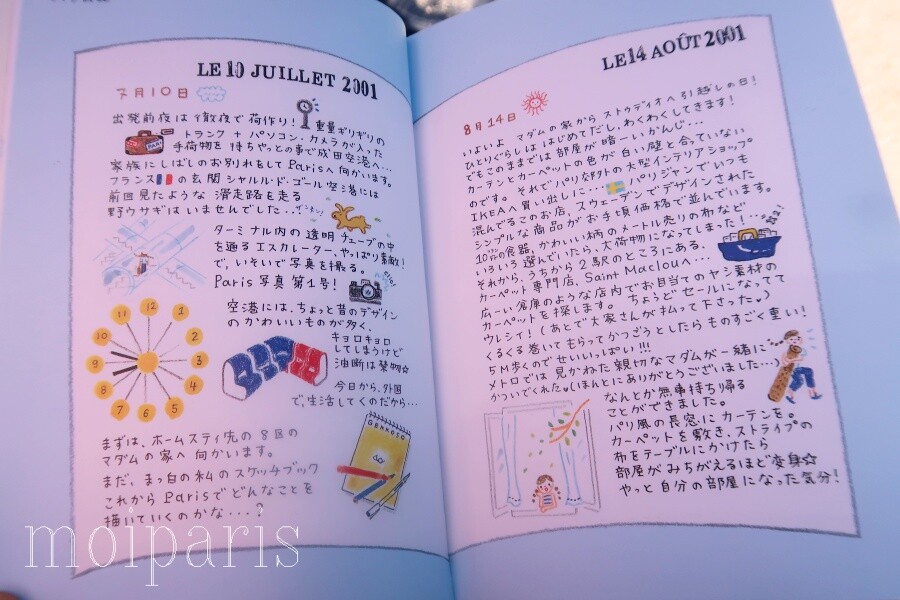 LE 10 JUILLET 2001
7月10日
出発前夜は徹夜で荷作り! 重量ギリギリの
トランク + パソコン・カメラが入った
手荷物を持ちやっとの事で成田空港へ…
家族にしばしのお別れをしてParisへ向かいます。
フランスの玄関シャルル・ド・ゴール空港には
前回見たような 滑走路を走る
野ウサギは いませんでした…
ターミナル内の透明チューブの中
を通るエスカレーター、やっぱり素敵!
で、いそいで写真を撮る。
Paris 写真 第1号!
空港には、ちょっと昔のデザイン
のかわいいものが多く、
キョロキョロ
してしまうけど
油断は禁物☆
今日から、外国
で、生活してくのだから…
12
1
2
3
4
5
6
7
8
9
10
11
まずは、ホームスティ先の 8区の
マダムの家へ 向かいます。
まだ、まっ白の私のスケッチブック
これから Parisで どんなことを
描いていくのかな…?
LE 14 AOÛT 2001
8月14日
いよいよ マダムの家から ストゥディオへ引越しの日!
ひとりぐらしは はじめてだし、わくわくしてきます!
でもこのままでは 部屋が 暗ーいかんじ…
カーテンとカーペットの色が 白い壁と合っていない
のです。 それで パリ郊外の 大型インテリアショップ
IKEAへ買い出しに… パリジャンでいつも
混んでるこのお店、スウェーデンでデザインされた
シンプルな商品が お手頃価格で並んでいます。
の食器、かわいい柄のメートル売りの布など
いろいろ選んでいたら、大荷物になってしまった!
それから、うちから 2駅のところにある、
カーペット専門店、Saint Maclouへ…
広ーい倉庫のような店内でお目当てのヤシ素材の
カーペットを探します。 ちょうど セールになってて
ウレシイ! (あとで大家さんが払って下さった♡)
くるくる巻いてもらってかつごうとしたら ものすごく重い!
5M歩くのでせいいっぱい!!!
メトロでは 見かねた 親切なマダムが一緒に
かついでくれた(ほんとにありがとうございました…)
なんとか無事持ち帰る
ことができました。
パリ風の長窓に カーテンを。
カーペットを敷き、ストライプの
布をテーブルにかけたら
部屋が みちがえるほど変身☆
やっと 自分の部屋になった気分!
moiparis